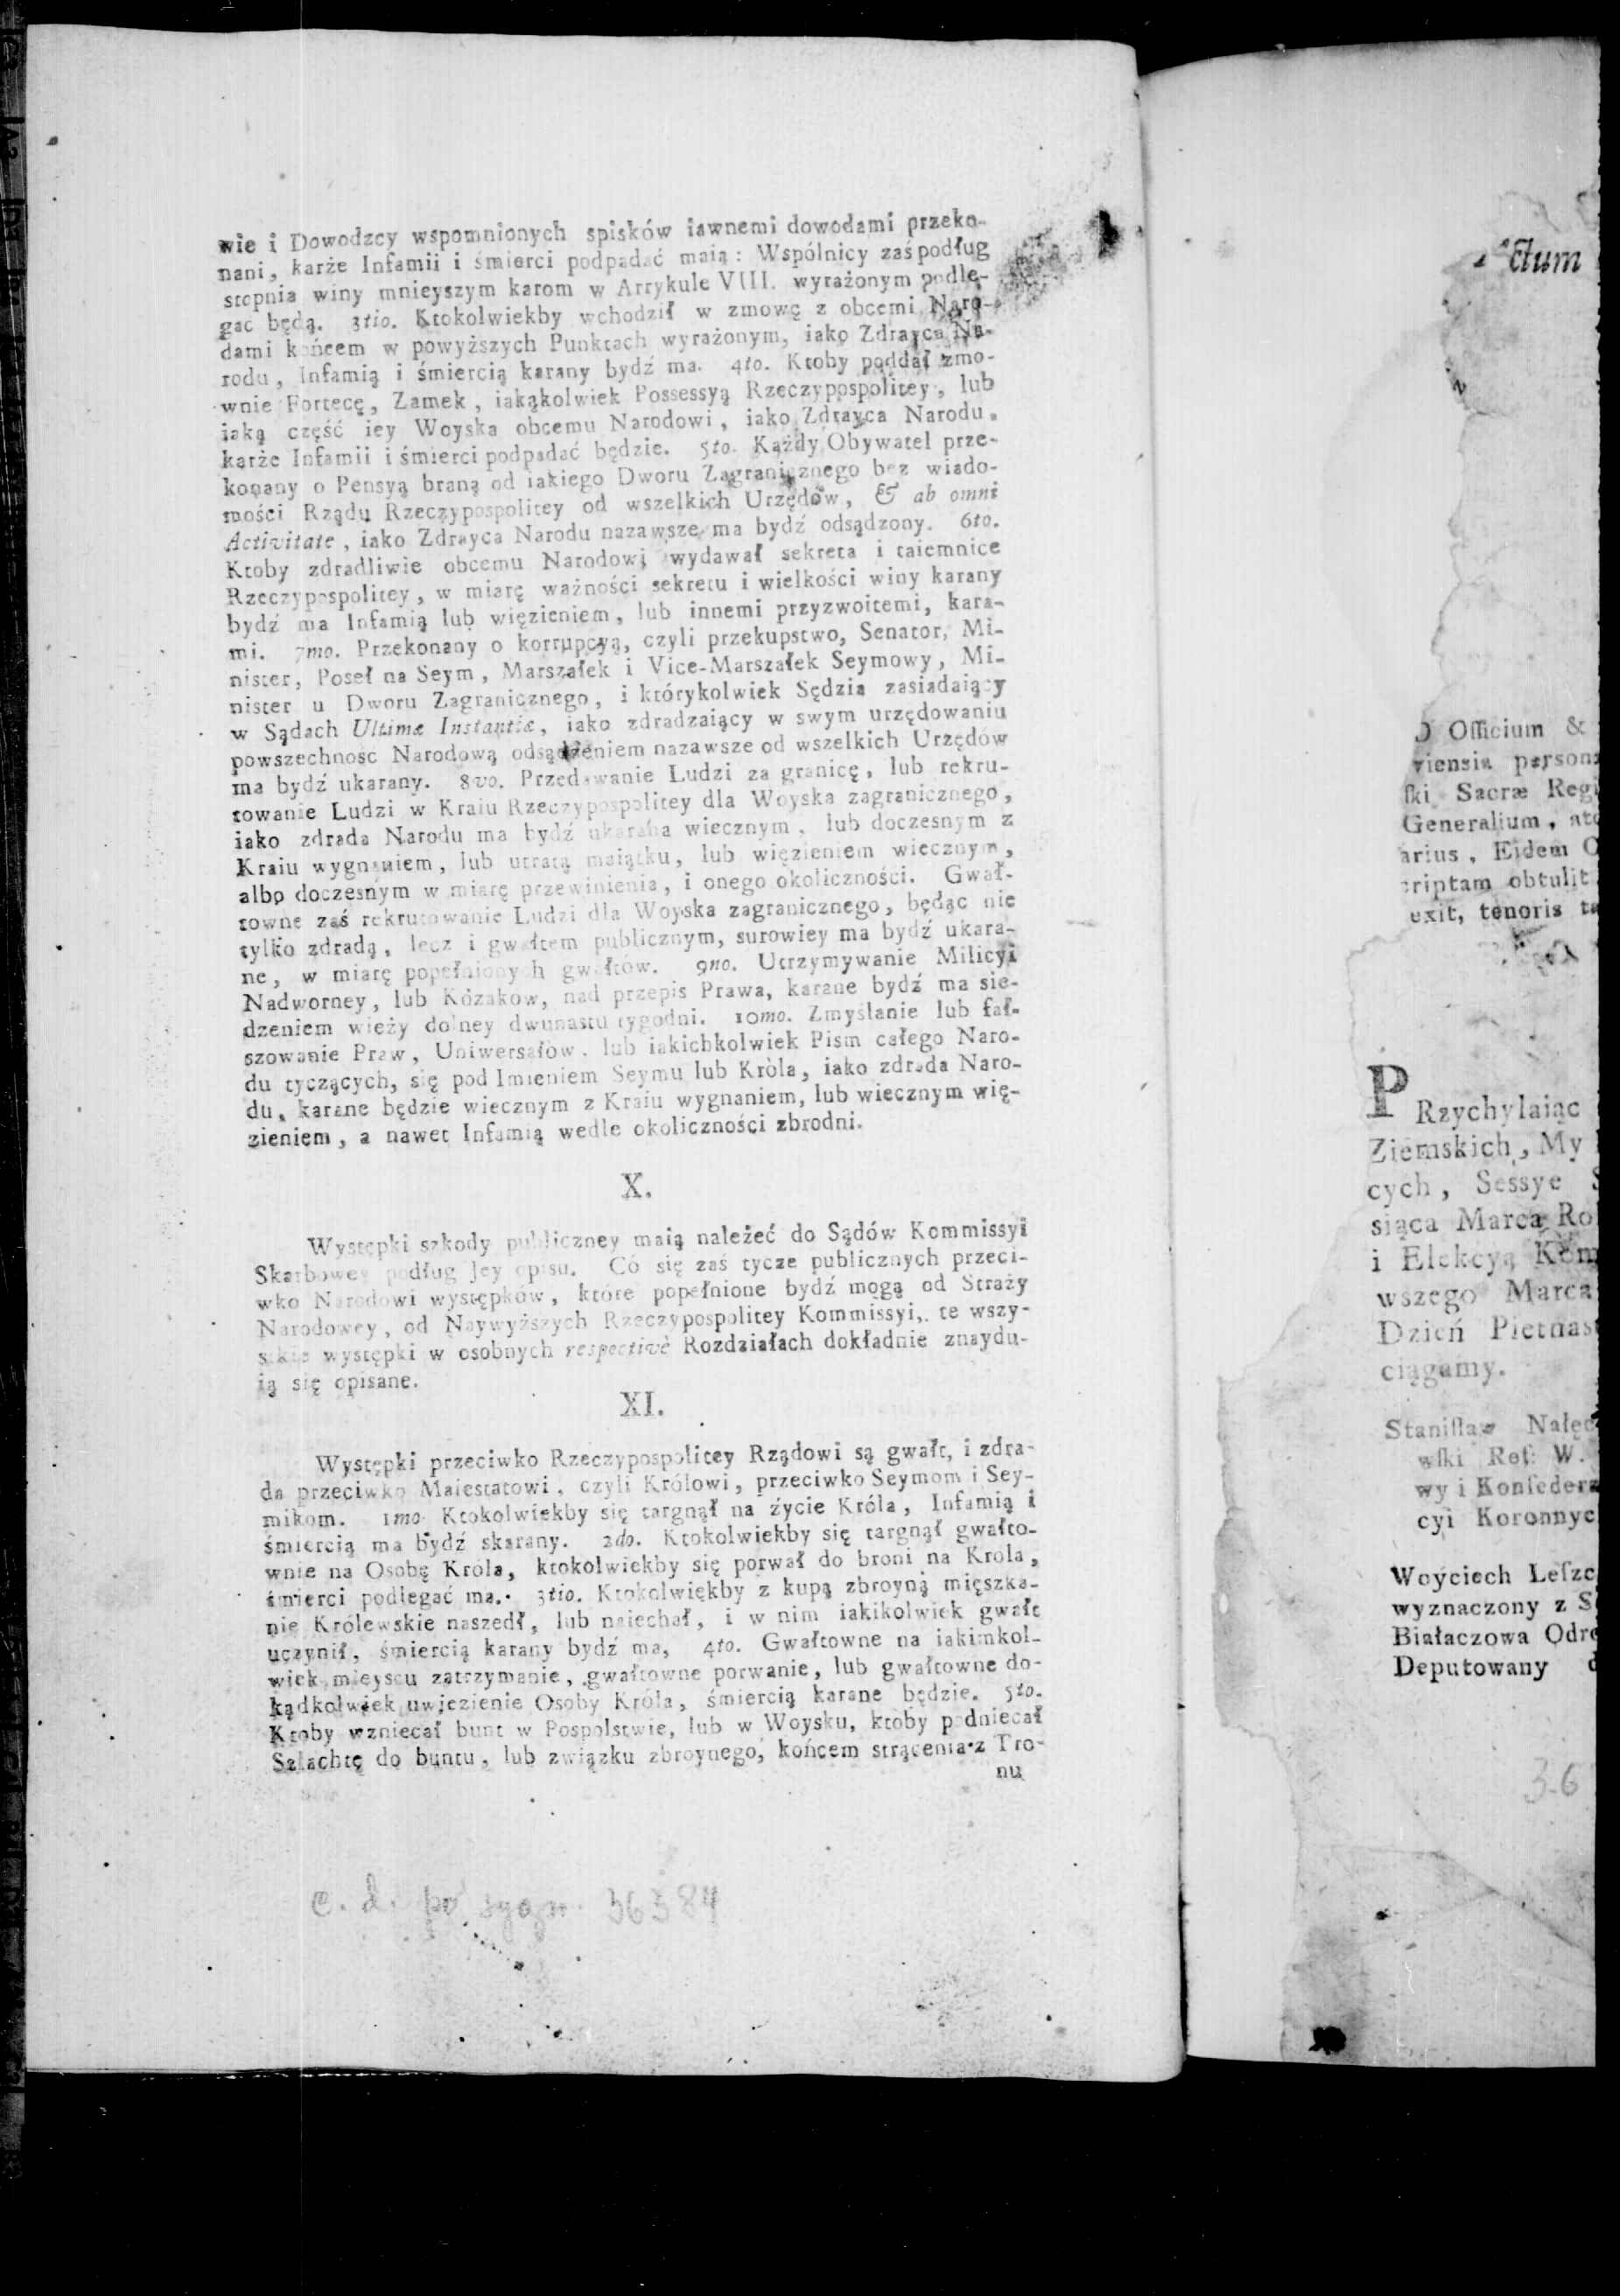 wie i Dowodzcy wspomnionych spisków iawnemi dowodami przeko-
nani, karże Infamii i śmierci podpadać maią: Wspólnicy zaś podług
stopnia winy mnieyszym karom w Artykule VIII. wyrażonym podle-
gać będą. 3tio. Ktokolwiekby wchodził w zmowę z obcemi Naro-
dami końcem w powyższych Punktach wyrażonym, iako Zdrayca Na-
rodu, Infamią i śmiercią karany bydź ma. 4to. Ktoby poddał zmo-
wnie Fortecę, Zamek, iakąkolwiek Possessyą Rzeczypospolitey, lub
iaką część iey Woyska obcemu Narodowi, iako Zdrayca Narodu,
karże Infamii i śmierci podpadać będzie. 5to. Każdy Obywatel prze-
konany o Pensyą braną od iakiego Dworu Zagranicznego bez wiado-
mości Rządu Rzeczypospolitey od wszelkich Urzędów, & ab omni
Activitate, iako Zdrayca Narodu nazawsze ma bydź odsądzony. 6to.
Ktoby zdradliwie obcemu Narodowi wydawał sekreta i taiemnice
Rzeczypospolitey, w miarę ważności sekretu i wielkości winy karany
bydź ma Infamią lub więzieniem, lub innemi przyzwoitemi, kara-
mi. 7mo. Przekonany o korrupcyą, czyli przekupstwo, Senator, Mi-
nister, Poseł na Seym, Marszałek i Vice-Marszałek Seymowy, Mi-
nister u Dworu Zagranicznego, i którykolwiek Sędzia zasiadaiący
w Sądach Ultimæ Instantiæ, iako zdradzaiący w swym urzędowaniu
powszechnosc Narodową odsądzeniem nazawsze od wszelkich Urzędów
ma bydź ukarany. 8vo. Przedawanie Ludzi za granicę, lub rekru-
towanie Ludzi w Kraiu Rzeczypospolitey dla Woyska zagranicznego,
iako zdrada Narodu ma bydź ukarana wiecznym, lub doczesnym z
Kraiu wygnaniem, lub utratą maiątku, lub więzieniem wiecznym,
albo doczesnym w miarę przewinienia, i onego okoliczności. Gwał-
towne zaś rekrutowanie Ludzi dla Woyska zagranicznego, będąc nie
tylko zdradą, lecz i gwałtem publicznym, surowiey ma bydź ukara-
ne, w miarę popełnionych gwałtów. 9no. Utrzymywanie Milicyi
Nadworney, lub Kozakow, nad przepis Prawa, karane bydź ma sie-
dzeniem wieży dolney dwunastu tygodni. 10mo. Zmyślanie lub fał-
szowanie Praw, Uniwersałow, lub iakichkolwiek Pism całego Naro-
du tyczących, się pod Imieniem Seymu lub Króla, iako zdrada Naro-
du, karane będzie wiecznym z Kraiu wygnaniem, lub wiecznym wię-
zieniem, a nawet Infamią wedle okoliczności zbrodni.
X.
Występki szkody publiczney maią należeć do Sądów Kommissyi
Skarbowey podług Jey opisu. Co się zaś tycze publicznych przeci-
wko Narodowi występków, które popełnione bydź mogą od Straży
Narodowey, od Naywyższych Rzeczypospolitey Kommissyi, te wszy-
stkie występki w osobnych respectivè Rozdziałach dokładnie znaydu-
ią się opisane.
XI.
Występki przeciwko Rzeczypospolitey Rządowi są gwałt, i zdra-
da przeciwko Maiestatowi, czyli Królowi, przeciwko Seymom i Sey-
mikom. 1mo Ktokolwiekby się targnął na życie Króla, Infamią i
śmiercią ma bydź skarany. 2do. Ktokolwiekby się targnął gwałto-
wnie na Osobę Króla, ktokolwiekby się porwał do broni na Krola,
śmierci podlegać ma. 3tio. Ktokolwiekby z kupą zbroyną mięszka-
nie Królewskie naszedł, lub naiechał, i w nim iakikolwiek gwałt
uczynił, śmiercią karany bydź ma, 4to. Gwałtowne na iakimkol-
wiek mieyscu zatrzymanie, gwałtowne porwanie, lub gwałtowne do-
kądkolwiek uwiezienie Osoby Króla, śmiercią karane będzie. 5to.
Ktoby wzniecał bunt w Pospolstwie, lub w Woysku, ktoby podniecał
Szlachtę do buntu, lub związku zbroynego, końcem strącenia z Tro-
nu
c. d. po sygn. 36384
ctum
O Officium &
viensia person
ski Sacræ Regi
Generalium, atq
arius, Eidem O
criptam obtulit
exit, tenoris ta
PRzychylaiąc
Ziemskich, My
cych, Sessye S
siąca Marca Ro
i Elekcyą Kom
wszego Marca
Dzień Pietnast
ciągamy.
Stanisław Nałęc
wski Ref: W.
wy i Konfedera
cyi Koronnyc
Woyciech Leszc
wyznaczony z S
Białaczowa Odro
Deputowany d
36